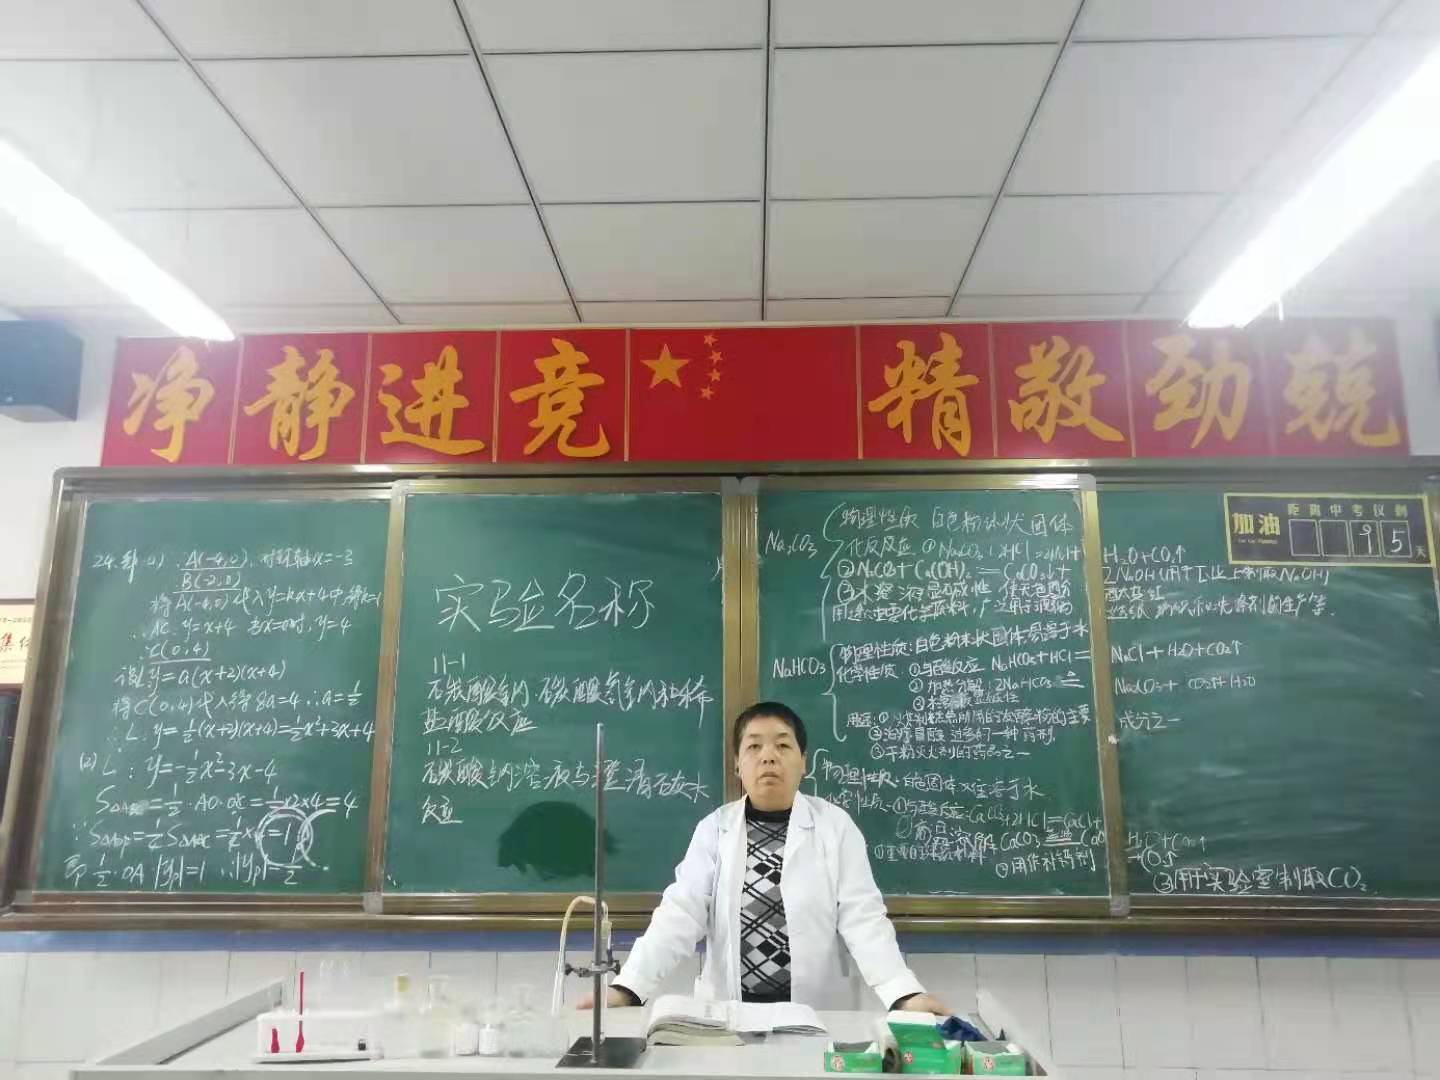 净静进竞 精敬劲兢
加油
距离中考仅剩
95天
24.解:(1) A(-4,0),对称轴x=-3
B(-2,0)
将A(-4,0)代入y=kx+4中,得k=1
∴AC:y=x+4 当x=0时,y=4
∴C(0,4)
设L:y=a(x+2)(x+4)
将C(0,4)代入得8a=4∴a=1/2
∴L:y=1/2(x+2)(x+4)=1/2x²+3x+4
(2)L:y=-1/2x²-3x-4
=1/2·AO·OC=1/2×2×4=4
即1/2·OA·|yp|=1 ∴|yp|=1/2
实验名称
11-1
碳酸钠、碳酸氢钠和稀
盐酸反应
11-2
碳酸钠溶液与澄清石灰水
反应
Na₂CO₃
物理性质 白色粉末状固体
①Na₂CO₃+2HCl=2NaCl+H₂O+CO₂↑
②Na₂CO₃+Ca(OH)₂=CaCO₃↓+2NaOH(用于工业上制取NaOH)
③水溶液显碱性,使无色酚酞变红
NaHCO₃
物理性质:白色粉末状固体,易溶于水
化学性质:①与酸反应 NaHCO₃+HCl=NaCl+H₂O+CO₂↑
②加热分解:2NaHCO₃=Na₂CO₃+CO₂↑+H₂O
③水溶液显碱性
用途:①
主要成分之一
②治疗胃酸过多的一种药剂
③干粉灭火剂的药品之一
物理性质:白色固体,难溶于水
化学性质:①与酸反应:CaCO₃+2HCl=CaCl₂+H₂O+CO₂↑
②高温分解 CaCO₃=CaO+CO₂↑
②用作补钙剂
③用于实验室制取CO₂